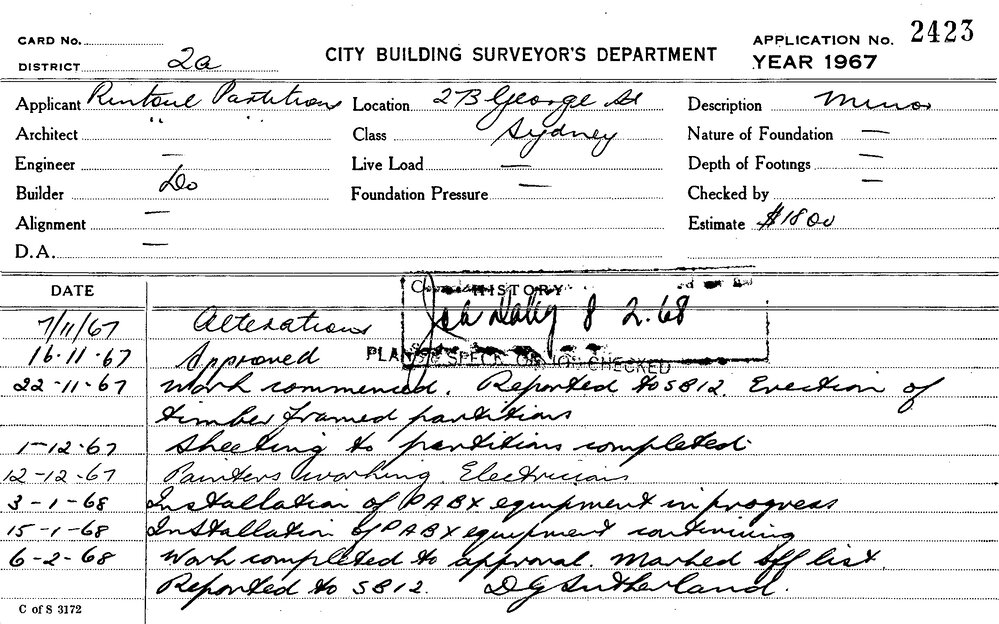 CARD No.
DISTRICT 2a
CITY BUILDING SURVEYOR'S DEPARTMENT
APPLICATION No. 2423
YEAR 1967
Applicant Rintoul Partitions Location 2B George St Description Minor
Architect " " Class Sydney Nature of Foundation —
Engineer — Live Load — Depth of Footings —
Builder Do Foundation Pressure — Checked by —
Alignment — Estimate $1800
D.A. —
DATE HISTORY
8 2.68
7/11/67 Alterations
16.11.67 Approved
PLANS & SPECK CHECKED
22-11-67 Work commenced. Reported to SB12. Erection of
timber framed partitions
1-12-67 Sheeting to partitions completed.
12-12-67 Painters working. Electricians
3-1-68 Installation of PABX equipment in progress
15-1-68 Installation of PABX equipment continuing
6-2-68 Work completed to approval. Marked off list.
Reported to SB12. DG Sutherland.
C of S 3172